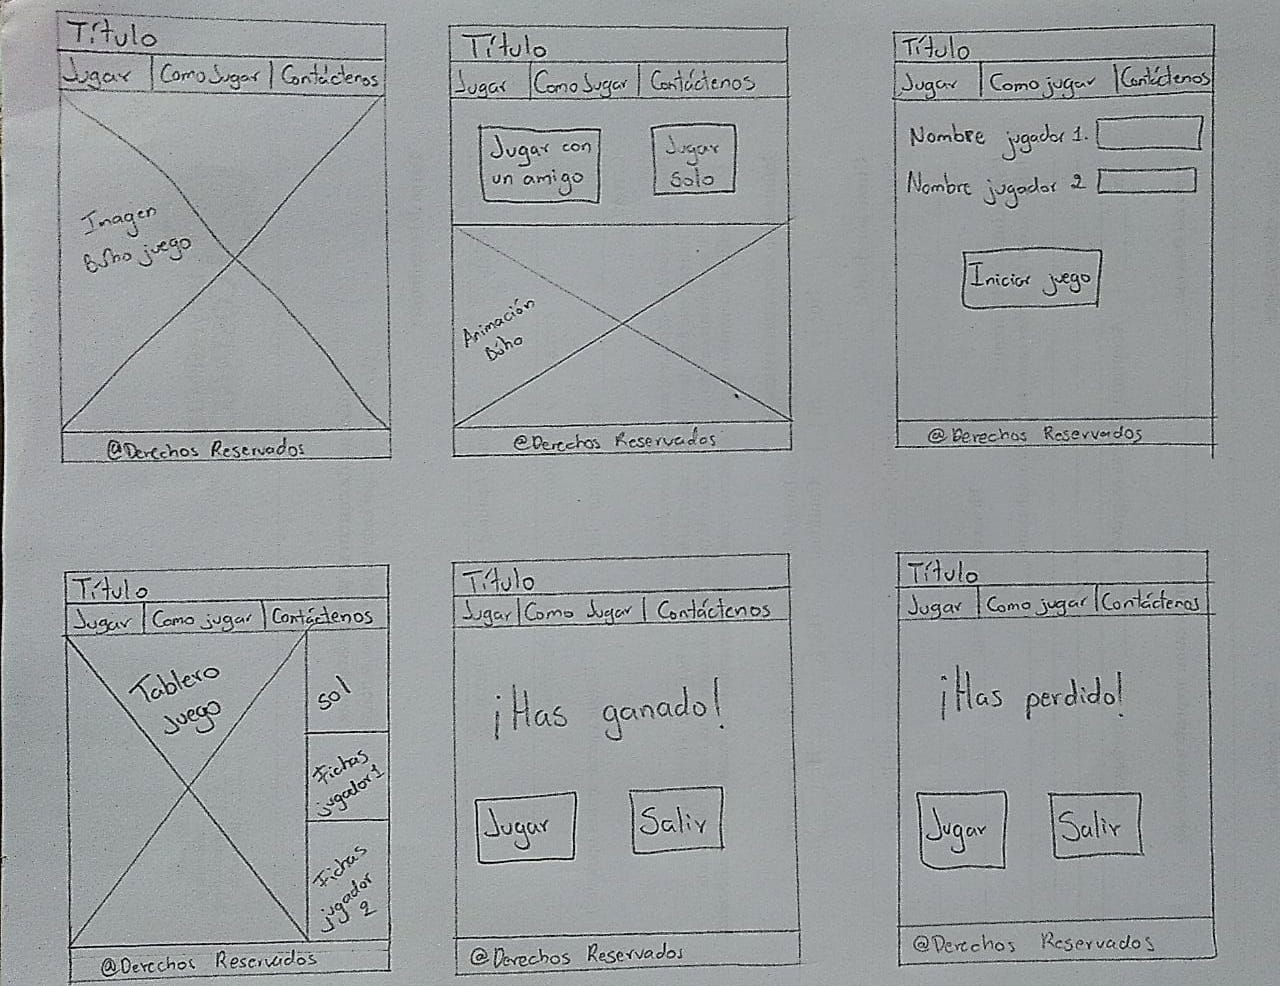 Título
Jugar Como Jugar Contáctenos
Imagen
Búho juego
@Derechos Reservados
Título
Jugar Como Jugar Contáctenos
Jugar con
un amigo
Jugar
Solo
Animación
Búho
@Derechos Reservados
Título
Jugar Como jugar Contáctenos
Nombre jugador 1.
Nombre jugador 2
Iniciar juego
@Derechos Reservados
Título
Jugar Como jugar Contáctenos
Tablero
Juego
Sol
Fichas
jugador 1
Fichas
jugador
2
@Derechos Reservados
Título
Jugar Como Jugar Contáctenos
¡Has ganado!
Jugar
Salir
@Derechos Reservados
Título
Jugar Como jugar Contáctenos
¡Has perdido!
Jugar
Salir
@Derechos Reservados